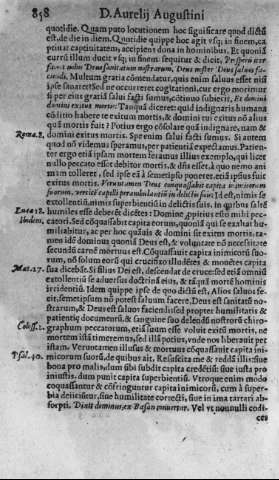 858 D. Aurelij Augustini
quotidie. Quam puto locutionem hoc significare quod dictũ
est, de die in diem. Quotidie quippe hoc agit vsq; in finem, ca
ptiuat captiuitatem, accipiens dona in hominibus. Et quoniã
currũ illum ducit vsq; in finem: sequitur & dicit,
nobis Deus sanitatum nostrarum, Deus noster Deus saluos fa-
ciendi. Multum gratia commendatur, quis enim saluus esset nisi
ipse sanaret? Sed ne occurreret cogitationi, cur ergo morimur
si per eius gratiã salui facti sumus, cõtinuo subiecit, Et domini
domini exitus mortis. Tanquã diceret: quid indignaris humana
cõditio habere te exitum mortis, & domini tui exitus nõ alius
quã mortis fuit? Potius ergo cõsolare quã indignare, nam &
Roma.8. domini exitus mortis. Spe enim salui facti sumus. Si autem
quod nõ videmus speramus, per patientiã expectamus. Patien-
ter ergo etiã ipsam mortem feramus illius exemplo, qui licet
nullo peccato esset debitor mortis, & dñs esset, à quo nemo ani
mam tolleret, sed ipse eã à semetipso poneret, etiã ipsius fuit
exitus mortis. Veruntamen Deus conquassabit capita inimicorum
suorum, verticẽ capilli perambulantium in delictis suis: Id est, nimis se
extollentiũ, nimis superbientiũ in delictis suis, in quibus saltẽ
Luca 18. humiles esse deberẽt dicẽtes: Domine, ppitius esto mihi pec-
Ibidem. catori. Sed cõquassabit capita eorum, quoniã qui se exaltat hu-
miliabitur, ac per hoc quãuis & domini sit exitus mortis, ta-
men idẽ dominus quoniã Deus est, & voluntate nõ necessitate
secundũ carnẽ mortuus est: Cõquassabit capita inimicorũ suo-
rum, nõ solum eorũ qui crucifixo illudẽtes & mouẽtes capita
Mat.27. sua dicebãt: Si filius Dei est, descendat de cruce: sed etiã omniũ
extollentiũ se aduersus doctrinã eius, & tãquã mortẽ hominis
irridentiũ. Idem quippe ipse de quo dictũ est, Alios saluos fe-
cit, semetipsum nõ potest saluum facere, Deus est sanitatũ no-
strarum, & Deus est saluos faciendi: sed propter humilitatis &
patientię documentũ, & sanguine suo delendũ nostrorũ chiro-
Coloss.2. graphum peccatorum, etiã suum esse voluit exitũ mortis, ne
mortem istã timeremus, sed illã potius, vnde nos liberauit per
istam. Veruntamen illusus & mortuus cõquassauit capita ini-
Psal.40. micorum suorũ, de quibus ait, Resuscita me & reddã illis: siue
bona pro malis, dum sibi subdit capita credẽtiũ: siue iusta pro
iniustis, dum punit capita superbientiũ. Vtroque enim modo
coquassantur & cõfringuntur capita inimicorũ, cum à super-
bia deiiciuntur, siue humilitate correcti, siue in ima tartari ab-
sorpti. Dixit dominus, ex Basan conuertar. Vel vt nonnulli codi-
ces